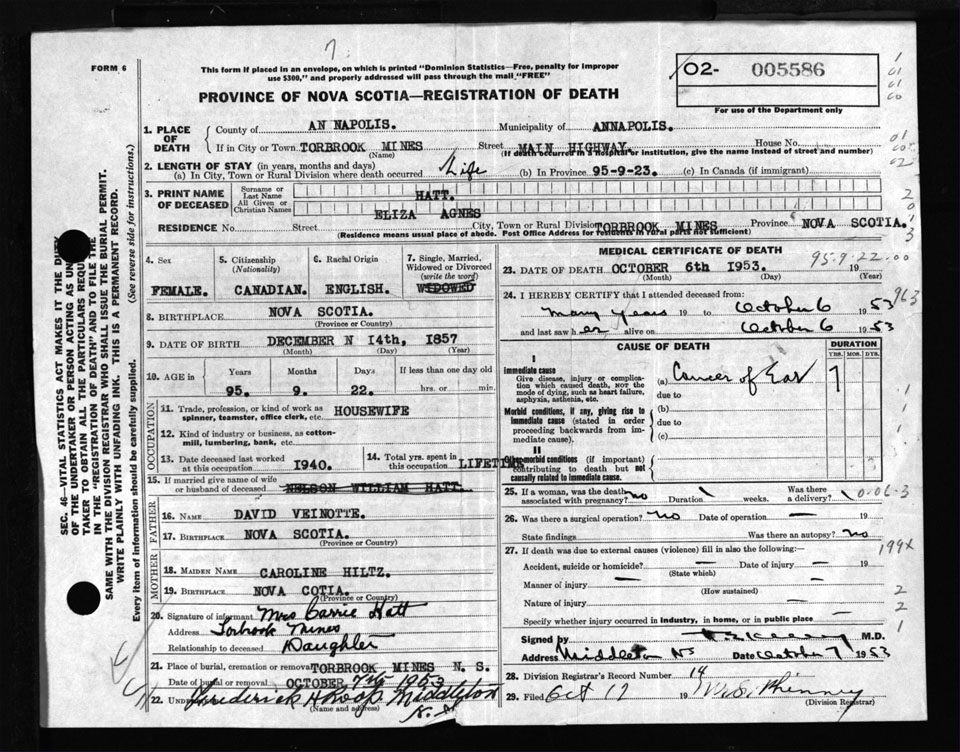 7
FORM 6
This form if placed in an envelope, on which is printed "Dominion Statistics—Free, penalty for improper
use $300," and properly addressed will pass through the mail "FREE"
PROVINCE OF NOVA SCOTIA—REGISTRATION OF DEATH
02- 005586
For use of the Department only
SEC. 46—VITAL STATISTICS ACT MAKES IT THE
OF THE UNDERTAKER OR PERSON ACTING AS
TAKER TO OBTAIN ALL THE PARTICULARS
IN THE "REGISTRATION OF DEATH" AND TO FILE THE
SAME WITH THE DIVISION REGISTRAR WHO SHALL ISSUE THE BURIAL PERMIT.
WRITE PLAINLY WITH UNFADING INK. THIS IS A PERMANENT RECORD.
Every item of information should be carefully supplied. (See reverse side for instructions.)
1. PLACE OF DEATH
County of AN NAPOLIS. Municipality of ANNAPOLIS.
If in City or Town TORBROOK MINES Street MAIN HIGHWAY. House No.
(Name) (If death occurred in a hospital or institution, give the name instead of street and number)
2. LENGTH OF STAY (in years, months and days)
(a) In City, Town or Rural Division where death occurred Life (b) In Province 95-9-23. (c) In Canada (if immigrant)
3. PRINT NAME OF DECEASED
Surname or Last Name HATT.
All Given or Christian Names ELIZA AGNES
RESIDENCE No. Street City, Town or Rural Division TORBROOK MINES Province NOVA SCOTIA.
(Residence means usual place of abode. Post Office Address for residents in rural parts not sufficient)
4. Sex FEMALE.
5. Citizenship (Nationality) CANADIAN.
6. Racial Origin ENGLISH.
7. Single, Married, Widowed or Divorced (write the word) WIDOWED
8. BIRTHPLACE NOVA SCOTIA.
(Province or Country)
9. DATE OF BIRTH DECEMBER N 14th, 1857
(Month) (Day) (Year)
10. AGE in Years Months Days If less than one day old
95. 9. 22. hrs. or min.
OCCUPATION
11. Trade, profession, or kind of work as spinner, teamster, office clerk, etc. HOUSEWIFE
12. Kind of industry or business, as cotton-mill, lumbering, bank, etc.
13. Date deceased last worked at this occupation 1940.
14. Total yrs. spent in this occupation LIFETIME
15. If married give name of wife or husband of deceased NELSON WILLIAM HATT.
FATHER
16. NAME DAVID VEINOTTE.
17. BIRTHPLACE NOVA SCOTIA.
(Province or Country)
MOTHER
18. MAIDEN NAME CAROLINE HILTZ.
19. BIRTHPLACE NOVA COTIA.
(Province or Country)
20. Signature of informant Mrs Carrie Hatt
Address Torbrook Mines
Relationship to deceased Daughter
21. Place of burial, cremation or removal TORBROOK MINES N. S.
Date of burial or removal OCTOBER 7th 1953
22. Frederick H Roop Middleton
(Name and address) N.S.
MEDICAL CERTIFICATE OF DEATH
95-9-22-00
23. DATE OF DEATH OCTOBER 6th 1953. 19
(Month) (Day) (Year)
24. I HEREBY CERTIFY that I attended deceased from:
many years 19 to October 6 1953
and last saw her alive on October 6 1953
CAUSE OF DEATH DURATION
YRS. MOS. DYS.
I
Immediate cause
Give disease, injury or complication which caused death, NOT the mode of dying, such as heart failure, asphyxia, asthenia, etc.
(a) Cancer of Ear 7
due to
Morbid conditions, if any, giving rise to immediate cause (stated in order proceeding backwards from immediate cause).
(b)
due to
(c)
II
Other morbid conditions (if important) contributing to death but not causally related to immediate cause.
25. If a woman, was the death associated with pregnancy? no Duration weeks. Was there a delivery?
26. Was there a surgical operation? no Date of operation — 19
State findings Was there an autopsy? no
27. If death was due to external causes (violence) fill in also the following:—
Accident, suicide or homicide? — Date of injury — 19
(State which)
Manner of injury —
(How sustained)
Nature of injury —
Specify whether injury occurred in industry, in home, or in public place —
Signed by M.D.
Address Middleton NS Date October 7 1953
28. Division Registrar's Record Number 14
29. Filed Oct 12 19
(Division Registrar)